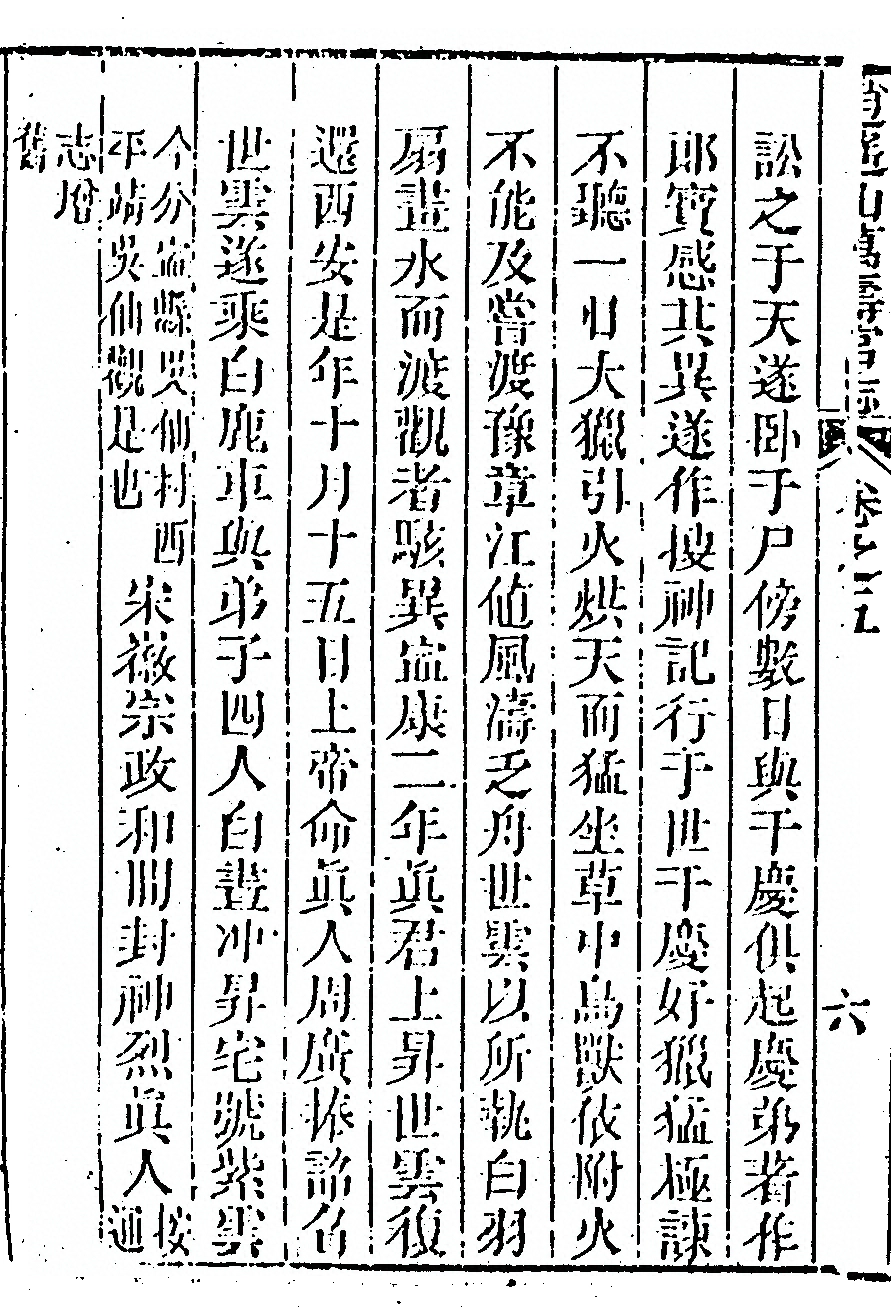 逍遙山萬壽宮志 卷之五 六
訟之于天遂卧于尸傍數日與干慶俱起慶弟著作
郎寶感其異遂作搜神記行于世干慶好獵猛極諫
不聽一日大獵引火烘天而猛坐草中鳥獸依附火
不能及嘗渡豫章江値風濤乏舟世雲以所執白羽
扇畫水而渡觀者駭異寍康二年眞君上昇世雲復
還西安是年十月十五日上帝命眞人周廣捧詔召
世雲遂乘白鹿車與弟子四人白晝冲昇宅號紫雲
今分寍縣吳仙村西
平靖吳仙觀是也
宋徽宗政和間封神烈眞人
按
通
志增
舊